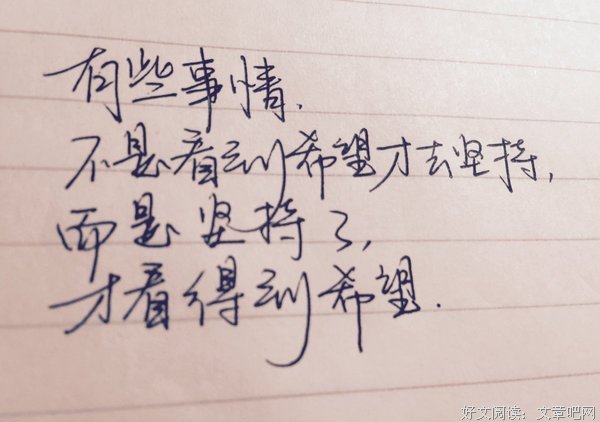 有些事情.
不是看到希望才去坚持,
而是坚持了,
才看得到希望.
好文阅读：文章吧网